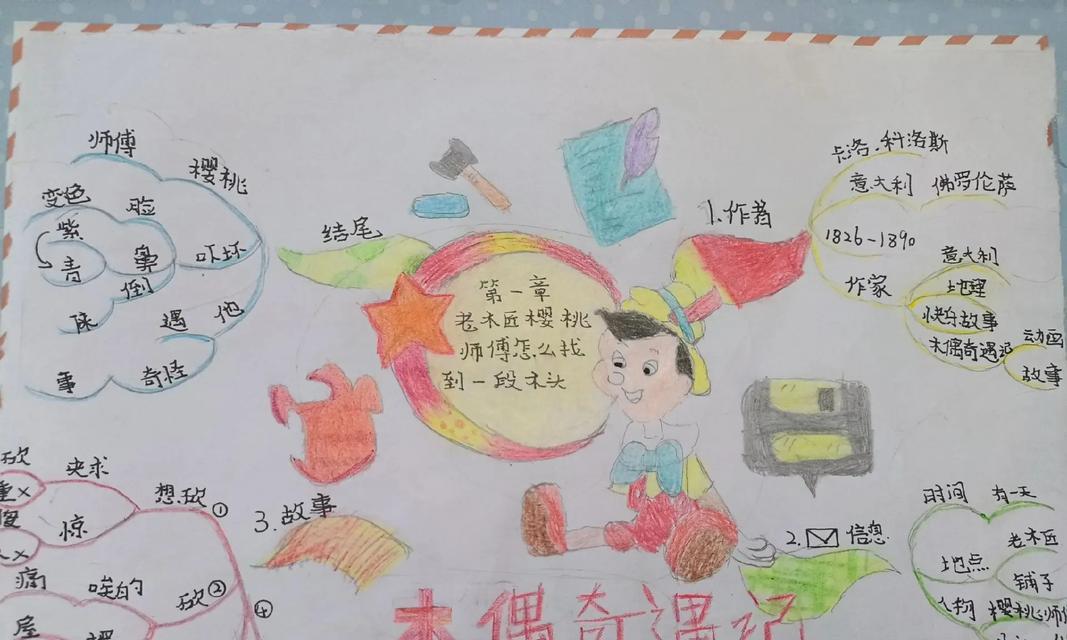 师傅
樱桃
变色
脸
紫
青
晕
倒
吓坏
陈
遇
他
事
奇怪
结尾
第一章
老木匠樱桃
师傅怎么找
到一段木头
1.作者
卡洛·科洛斯
意大利 佛罗伦萨
1826-1890
作家
意大利
地理
快白故事
木偶奇遇记
动画
故事
砍
央求
重×
惊
想砍①
痛
唉的
砍②
④
屋
3.故事
2. 信息
时间 有一天
地点
老木匠
铺子
人物 樱桃师傅
木偶奇遇记